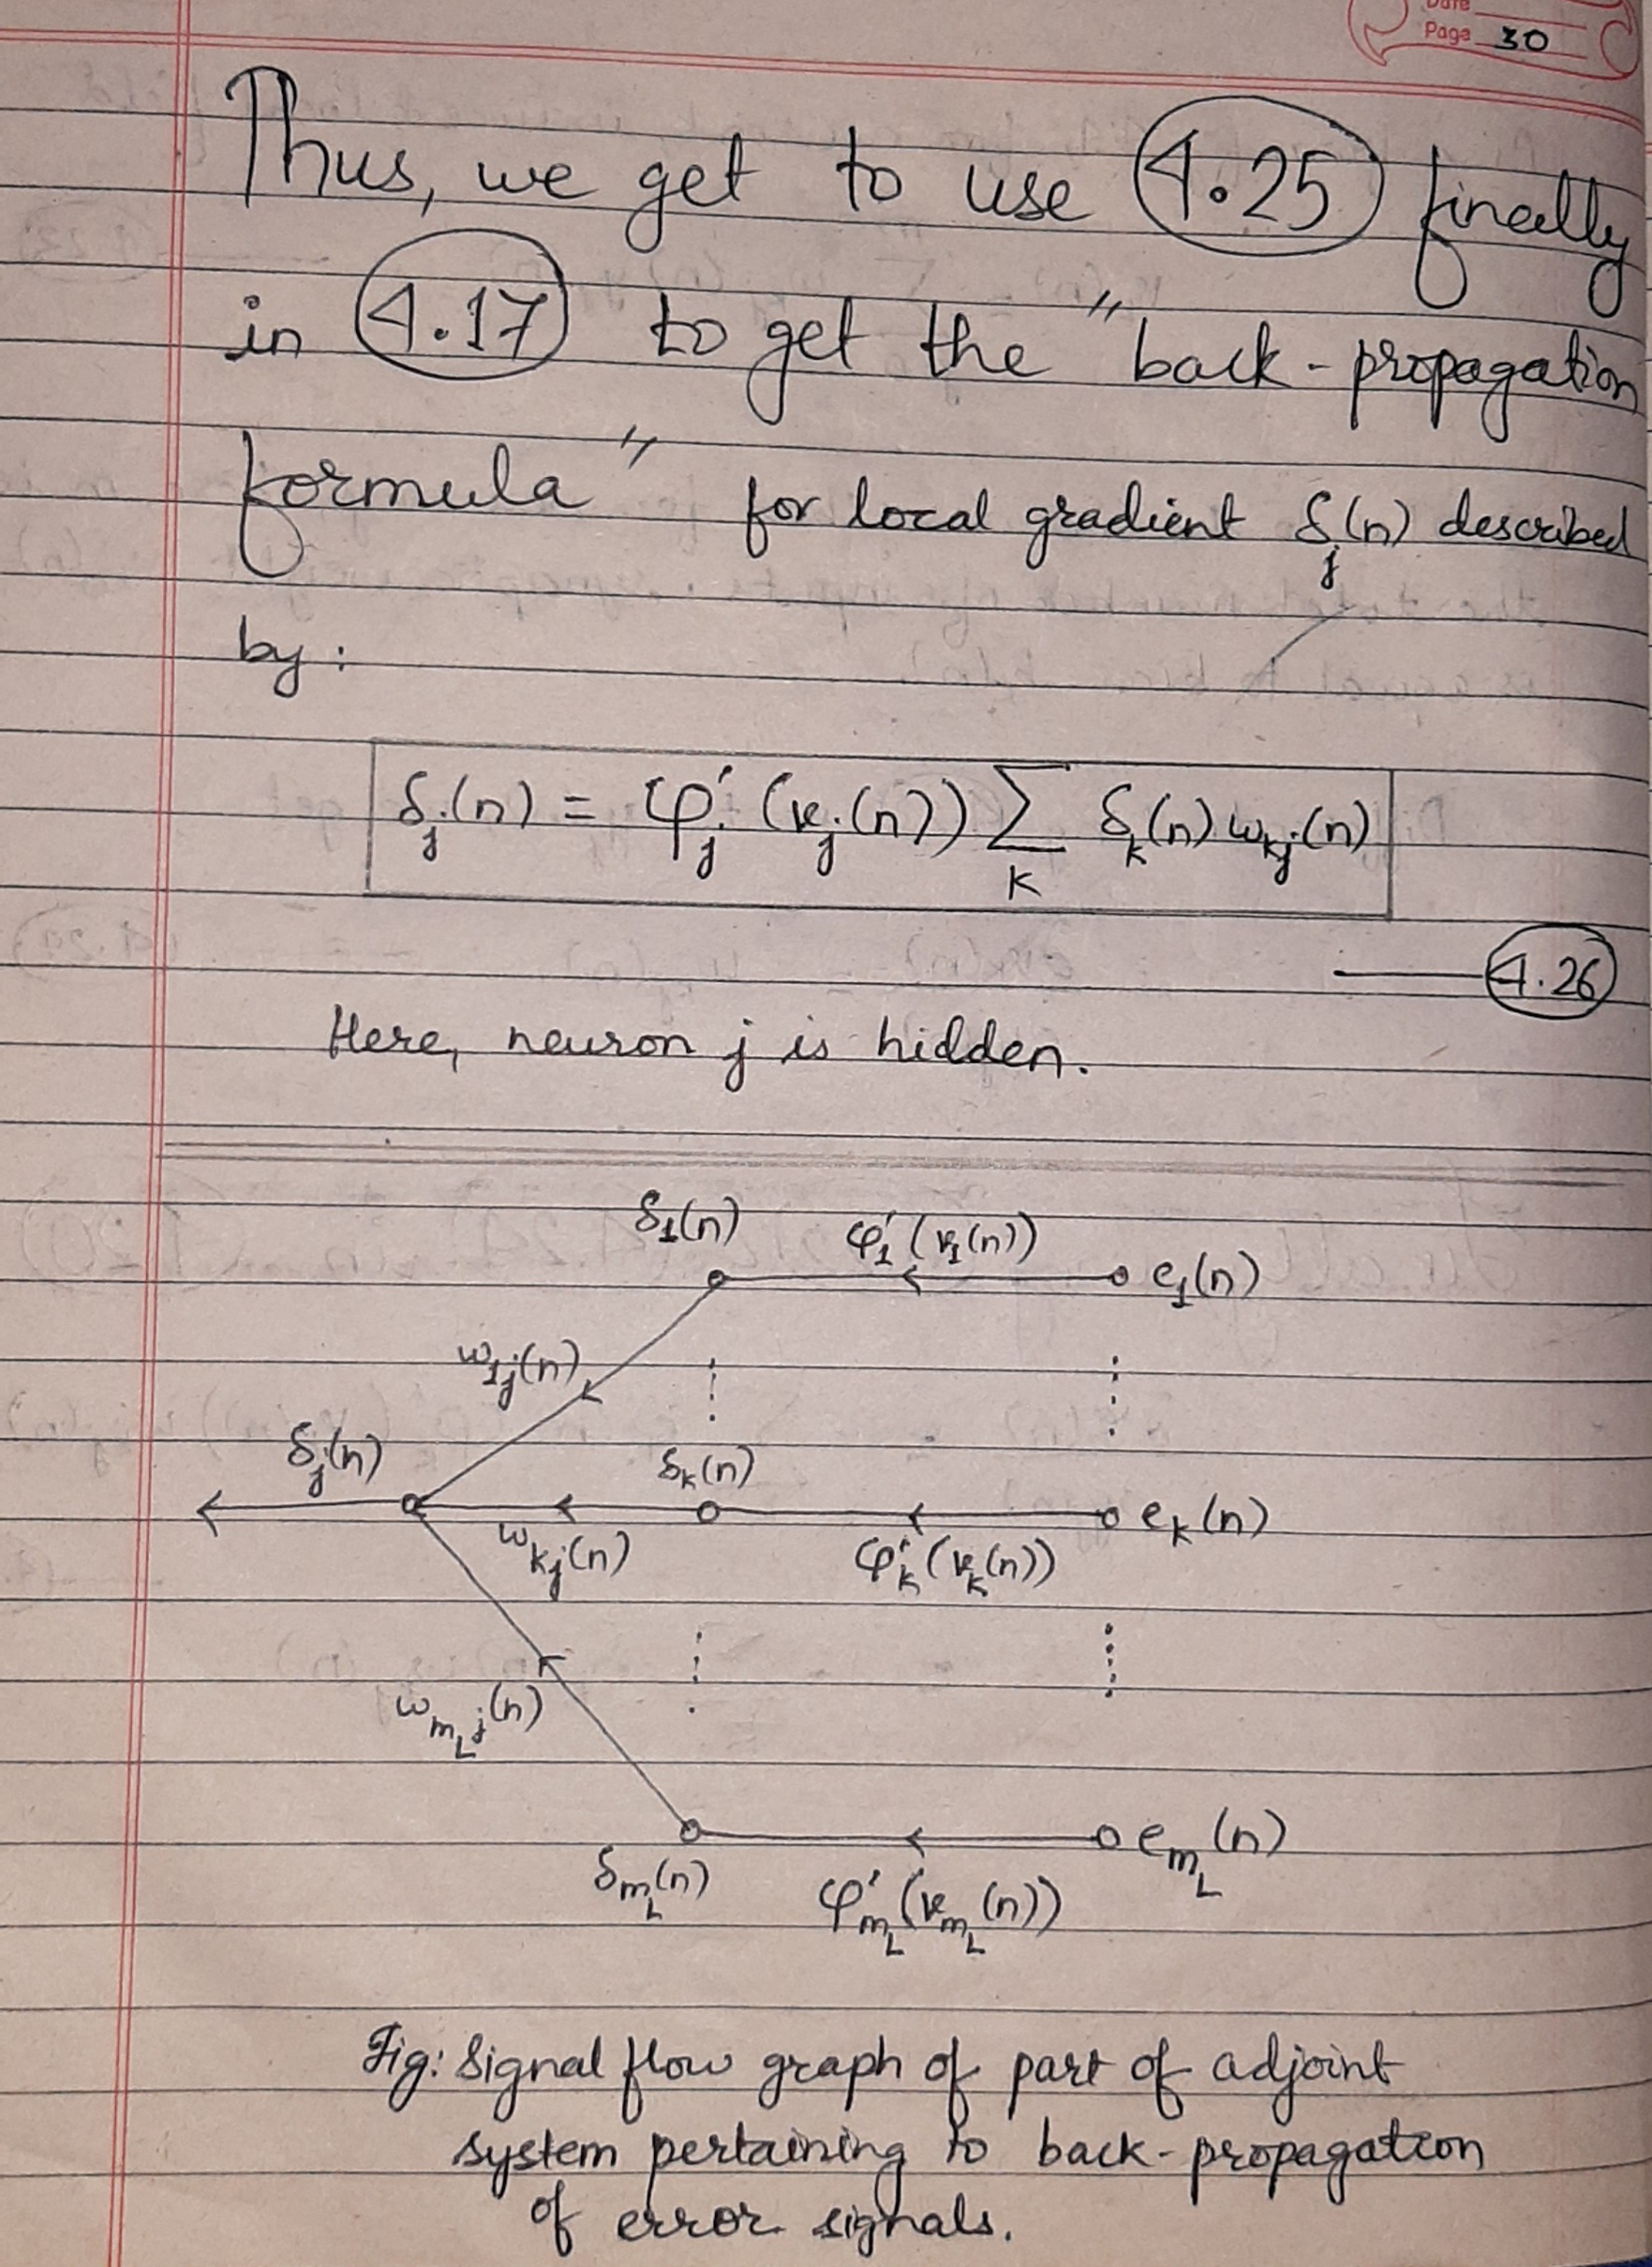 Date
Page 30
Thus, we get to use 4.25 finally
in 4.17 to get the "back-propagation
formula" for local gradient δ_j(n) described
by:
δ_j(n) = φ'_j (v_j(n)) Σ_k δ_k(n) w_kj(n)
4.26
Here, neuron j is hidden.
δ_1(n) φ'_1(v_1(n)) e_1(n)
w_1j(n)
δ_j(n) δ_k(n) e_k(n)
w_kj(n) φ'_k(v_k(n))
w_{m_L j}(n)
e_{m_L}(n)
δ_{m_L}(n) φ'_{m_L}(v_{m_L}(n))
Fig: Signal flow graph of part of adjoint
system pertaining to back-propagation
of error signals.